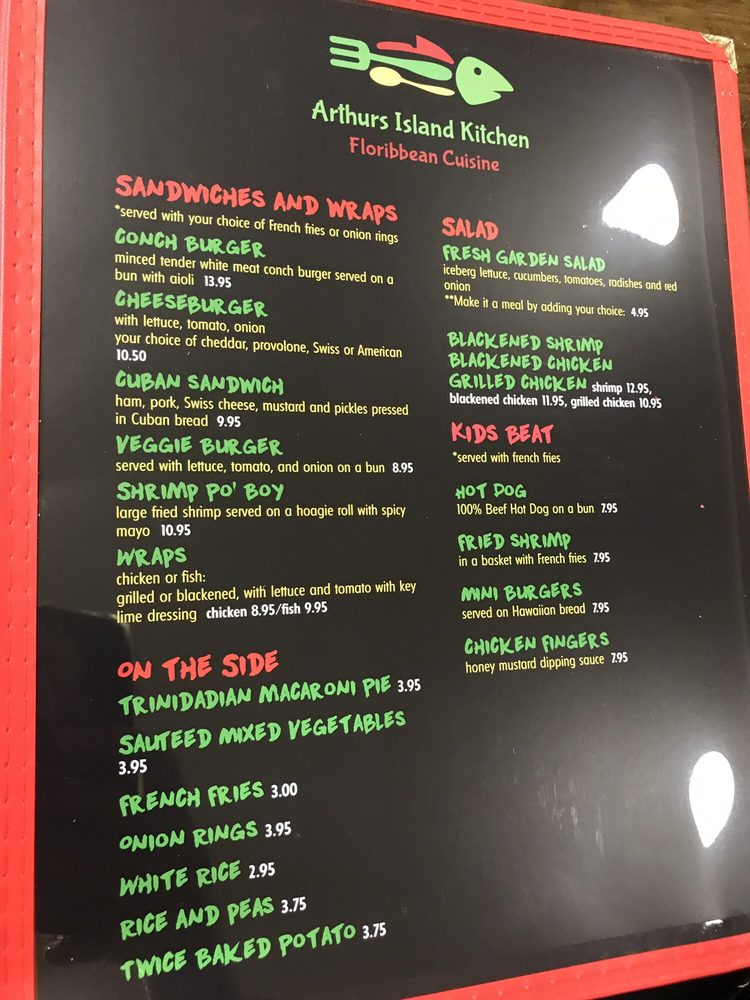 Arthurs Island Kitchen
Floribbean Cuisine
SANDWICHES AND WRAPS
*served with your choice of French fries or onion rings
CONCH BURGER
minced tender white meat conch burger served on a
bun with aioli 13.95
CHEESEBURGER
with lettuce, tomato, onion
your choice of cheddar, provolone, Swiss or American
10.50
CUBAN SANDWICH
ham, pork, Swiss cheese, mustard and pickles pressed
in Cuban bread 9.95
VEGGIE BURGER
served with lettuce, tomato, and onion on a bun 8.95
SHRIMP PO' BOY
large fried shrimp served on a hoagie roll with spicy
mayo 10.95
WRAPS
chicken or fish:
grilled or blackened, with lettuce and tomato with key
lime dressing chicken 8.95/fish 9.95
ON THE SIDE
TRINIDADIAN MACARONI PIE 3.95
SAUTEED MIXED VEGETABLES
3.95
FRENCH FRIES 3.00
ONION RINGS 3.95
WHITE RICE 2.95
RICE AND PEAS 3.75
TWICE BAKED POTATO 3.75
SALAD
FRESH GARDEN SALAD
iceberg lettuce, cucumbers, tomatoes, radishes and red
onion
**Make it a meal by adding your choice: 4.95
BLACKENED SHRIMP
BLACKENED CHICKEN
GRILLED CHICKEN shrimp 12.95,
blackened chicken 11.95, grilled chicken 10.95
KIDS BEAT
*served with french fries
HOT DOG
100% Beef Hot Dog on a bun 7.95
FRIED SHRIMP
in a basket with French fries 7.95
MINI BURGERS
served on Hawaiian bread 7.95
CHICKEN FINGERS
honey mustard dipping sauce 7.95